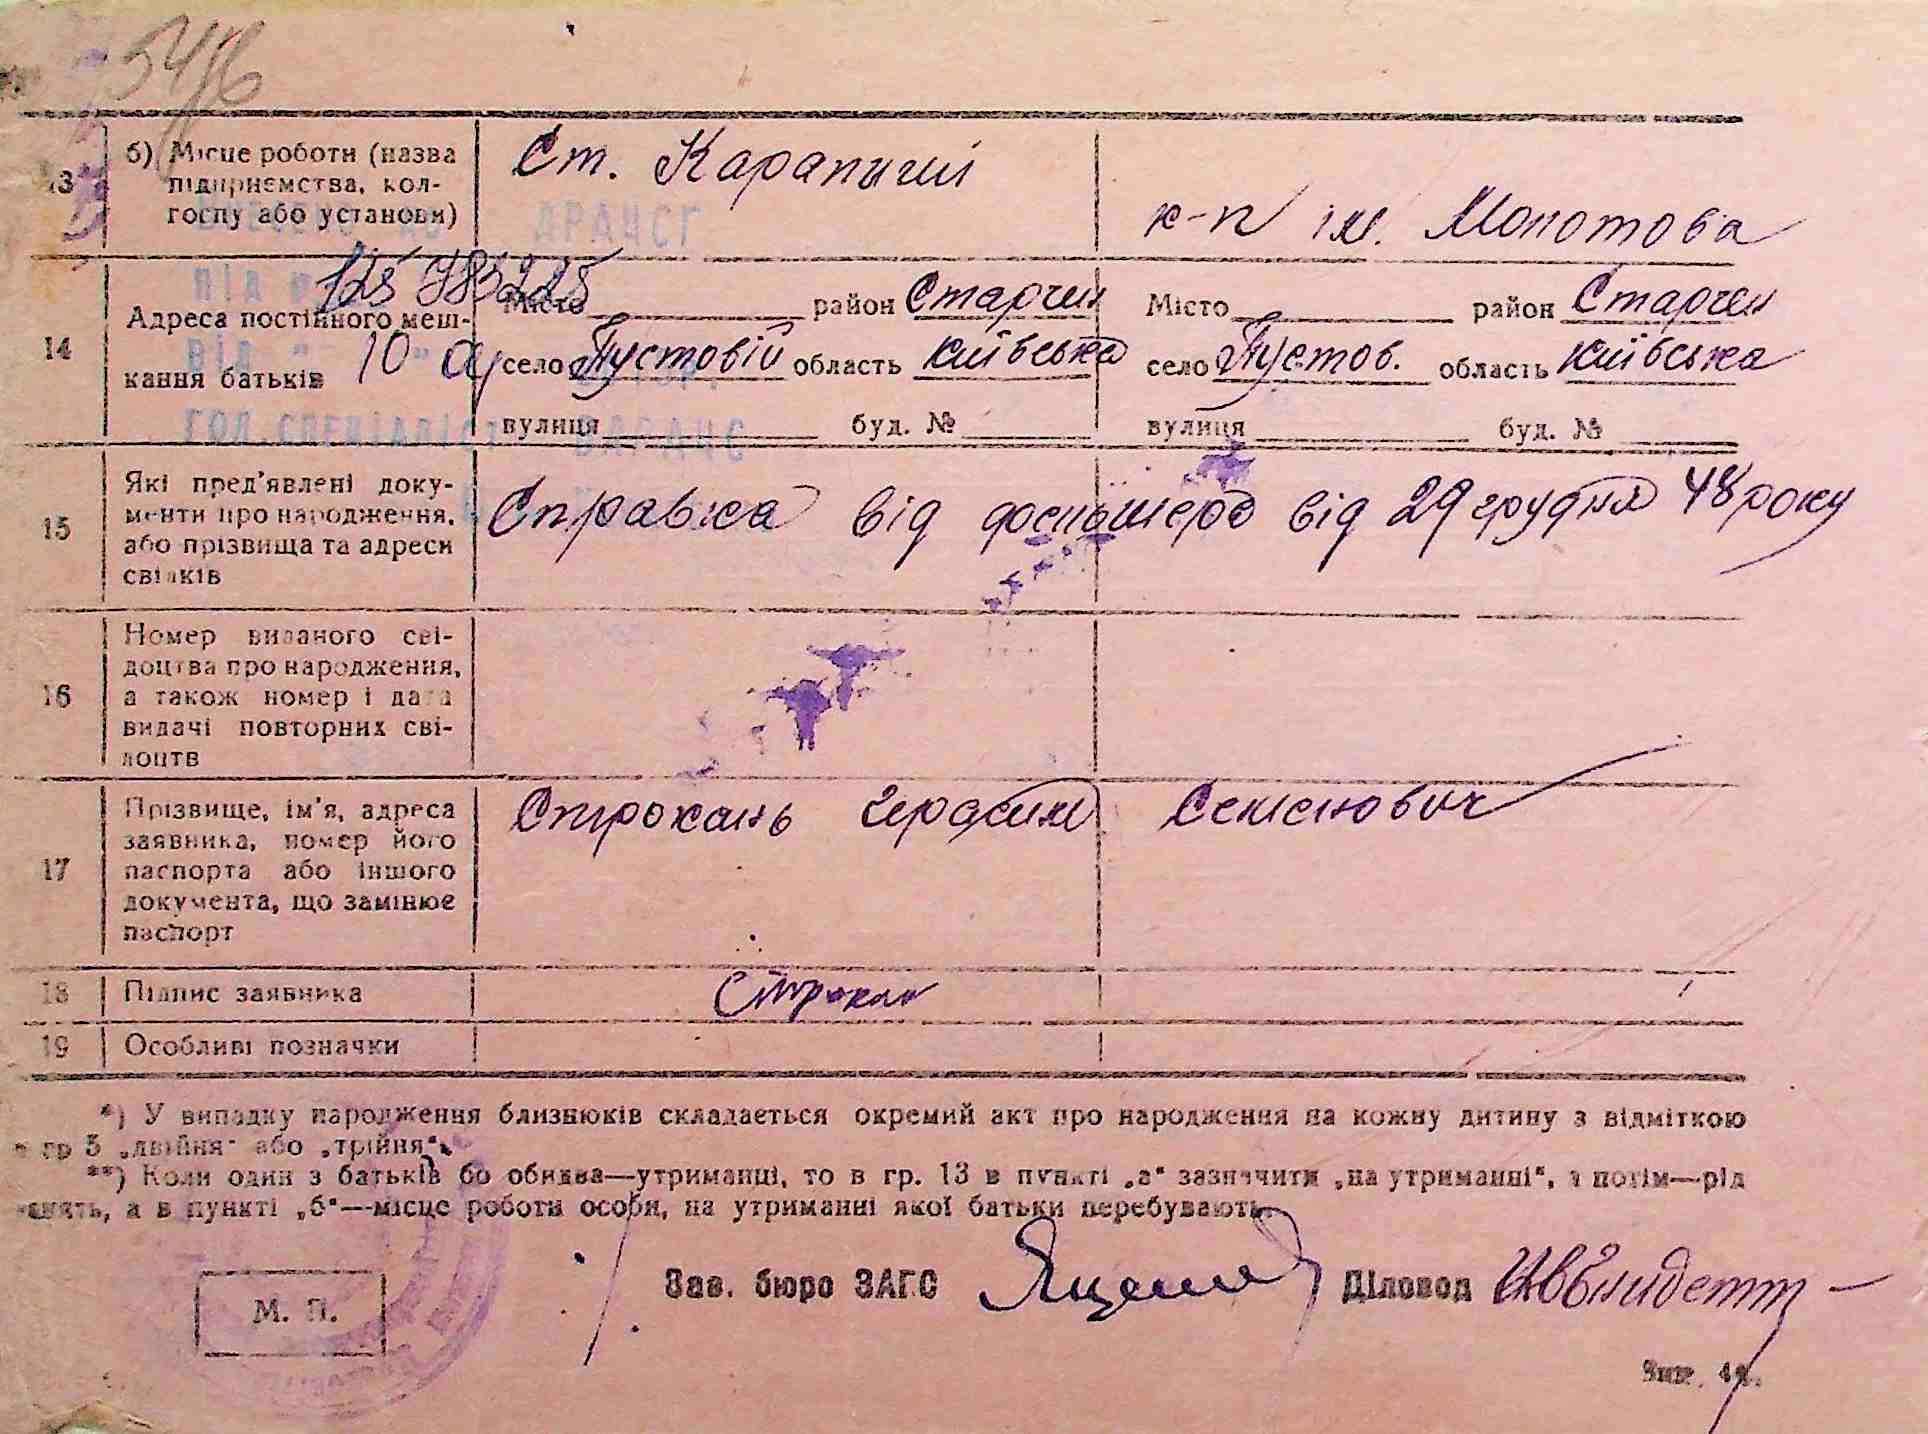 5416
13 б) Місце роботи (назва
підприємства, кол-
госпу або установи)
Ст. Карапиши
к-п ім. Молотова
ДРАЧСГ
під
125 785225
14 Адреса постійного меш-
кання батьків
Місто район Старчен
село Пустовій область Київська
вулиця буд. №
Місто район Старчен
село Пустов. область Київська
вулиця буд. №
від " 10 "
ГОЛ. СПЕЦІАЛІСТ ВАРАЧС
15 Які пред'явлені доку-
менти про народження,
або прізвища та адреси
свідків
Справка від від 29 грудня 48 року
16 Номер виданого сві-
доцтва про народження,
а також номер і дата
видачі повторних сві-
доцтв
17 Прізвище, ім'я, адреса
заявника, номер його
паспорта або іншого
документа, що замінює
паспорт
Строкань Герасим Семенович
18 Підпис заявника
Строкань
19 Особливі позначки
*) У випадку народження близнюків складається окремий акт про народження на кожну дитину з відміткою
в гр 5 „двійня" або „трійня".
**) Коли один з батьків бо обидва—утриманці, то в гр. 13 в пункті „а" зазначити „на утриманні", а потім—рід
занять, а в пункті „б"—місце роботи особи, на утриманні якої батьки перебувають.
М. П.
Зав. бюро ЗАГС
Діловод